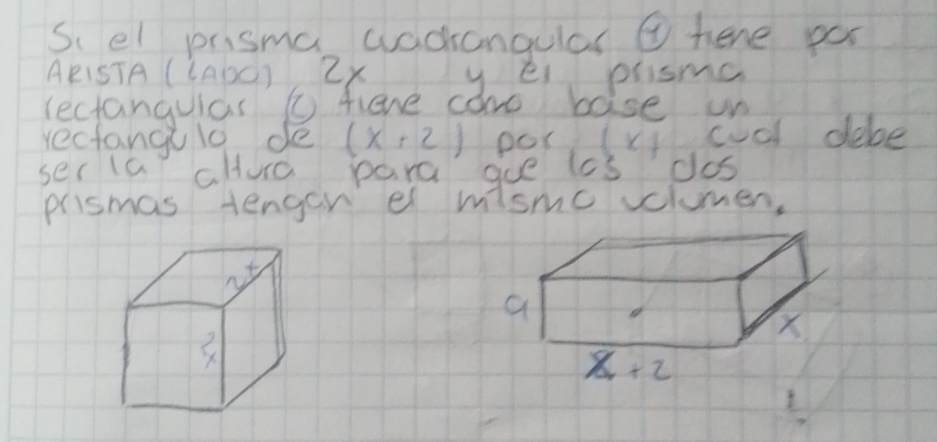 Si el prisma cuadrangular ④ tiene por
ARISTA (LADO) 2x y el prisma
rectangular tiene como base un
rectangulo de (x+2) por (x) cual debe
ser la altura para que los dos
prismas tengan el mismo volumen.
2x
2x
a
x
x + 2